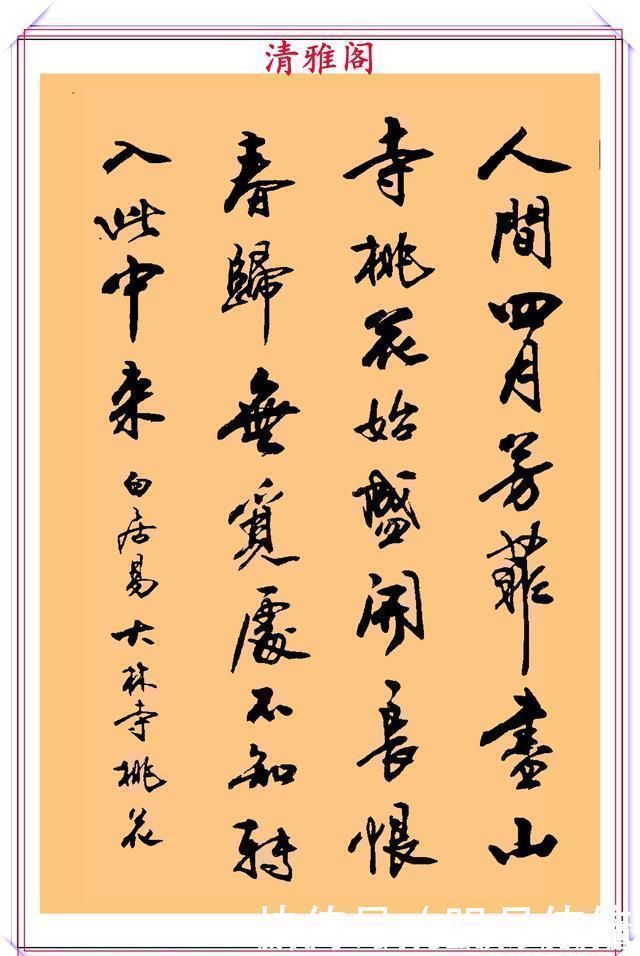 清雅阁
人間四月芳菲盡山
寺桃花始盛開長恨
春歸無覓處不知轉
入此中来
白居易大林寺桃花